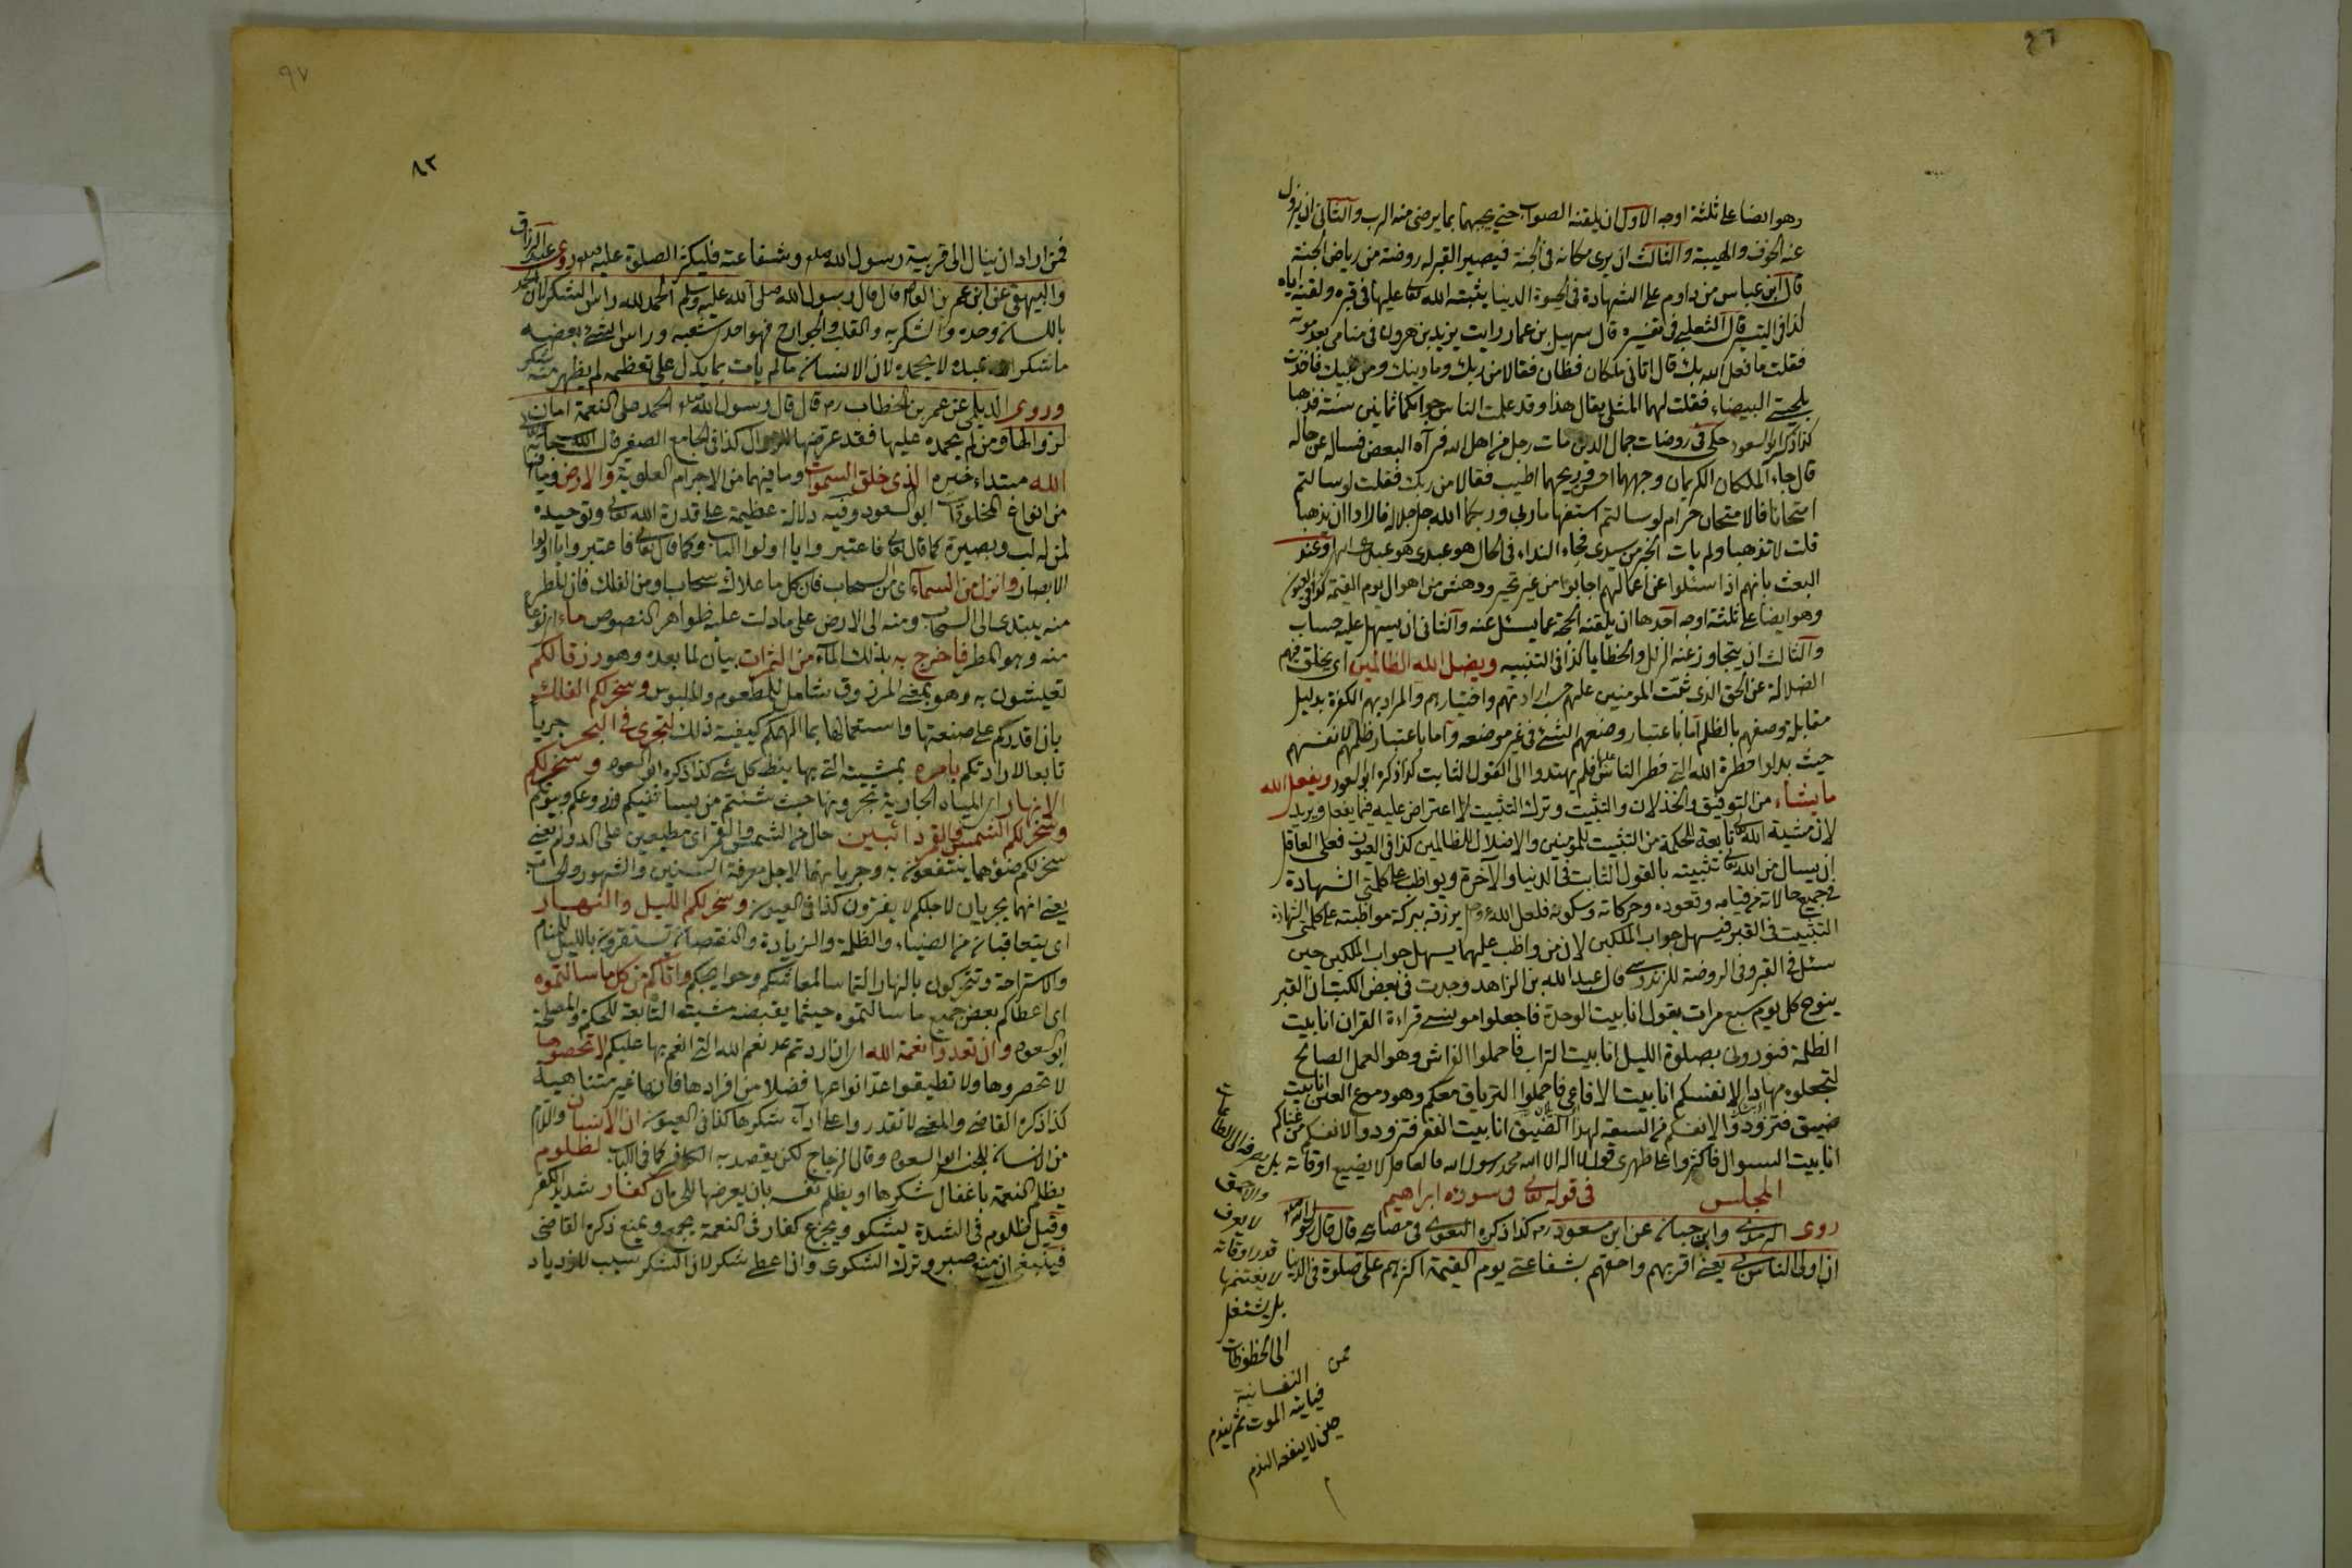 ٩٦
وهو ايضا على ثلثة اوجه الاول ان يلقنه الصواب حتى يجيبهما بما يرضى منه الرب والثانى ان يزول
عنه الخوف والهيبة والثالث ان يرى مكانه فى الجنة فيصير القبر له روضة من رياض الجنة
قال ابن عباس من داوم على الشهادة فى الحيوة الدنيا يثبته الله تعالى عليها فى قبره ولقنه اياه
كذا فى التيسير قال الثعلبى فى تفسيره قال سهيل بن عمار رايت يزيد بن هرون فى منامى بعد موته
فقلت ما فعل الله بك قال اتانى ملكان فظان فقالا من ربك وما دينك ومن نبيك فاخذت
بلحيتى البيضاء فقلت لهما المثلى يقال هذا وقد علمت الناس جوابكما ثمانين سنة فذهبا
كذا ذكر ابو السعود حكى فى روضات جمال الدين مات رجل من اهل الله فرآه البعض فساله عن حاله
قال جاء الملكان الكريمان وجههما احسن وريحهما اطيب فقالا من ربك فقلت لو سالتم
امتحانا فالامتحان حرام لو سالتم استفهاما ربى وربكما الله جل جلاله فارادا ان يذهبا
قلت لا تذهبا ولم يات الخبر من سيدى فجاء النداء فى الحال هو عبدى هو عبدى وعند
البعث بانهم اذا سئلوا عن اعمالهم اجابوا من غير تحير ودهش من اهوال يوم القيمة كذا فى العيون
وهو ايضا على ثلثة اوجه احدها ان يلقنه الحجة عما يسئل عنه والثانى ان يسهل عليه حساب
والثالث ان يتجاوز عنه الزلل والخطايا كذا فى التنبيه ويضل الله الظالمين اى يخلق فيهم
الضلالة عن الحق الذى ثبت المومنين عليه حسب ارادتهم واختيارهم والمراد بهم الكفرة بدليل
مقابلة وصفهم بالظلم اما باعتبار وضعهم الشئ فى غير موضعه واما باعتبار ظلمهم لانفسهم
حيث بدلوا فطرة الله التى فطر الناس عليها فلم يهتدوا الى القول الثابت كذا ذكره ابو السعود ويفعل الله
ما يشاء من التوفيق والخذلان والتثبيت وترك التثبيت لا اعتراض عليه فيما يفعل ويريد
لان مشية الله تعالى تابعة للحكمة من التثبيت للمومنين والاضلال للظالمين كذا فى العيون فعلى العاقل
ان يسال من الله تعالى تثبيته بالقول الثابت فى الدنيا والآخرة ويواظب على كلمتى الشهادة
فى جميع حالاته من قيامه وقعوده وحركاته وسكونه فلعل الله عز وجل يرزقه ببركة مواظبته على كلمتى الشهادة
التثبيت فى القبر فيسهل جواب الملكين لان من واظب عليهما يسهل جواب الملكين حين
سئل فى القبر وفى الروضة للزندوسى قال عبد الله بن الزاهد وجدت فى بعض الكتب ان القبر
ينوح كل يوم سبع مرات يقول انا بيت الوحدة فاجعلوا مونسى قراءة القران انا بيت
الظلمة فنورونى بصلوة الليل انا بيت التراب فاحملوا الفراش وهو العمل الصالح
لتجعلوه مهادا لانفسكم انا بيت الافاعى فاحملوا الترياق معكم وهو دموع العين انا بيت
ضيق فتزودوا لانفسكم من السعة لهذا الضيق انا بيت الفقر فتزودوا لانفسكم من غناكم
انا بيت السوال فاكثروا على ظهرى قول لا اله الا الله محمد رسول الله فالعاقل لا يضيع اوقاته بل يصرفه الى الطاعات
والاحمق
لا يعرف
قدر اوقاته
لا يغتنمها
بل يشتغل
الى الحظوظات
النفسانية
فياتيه الموت ثم يندم
حين لا ينفعه الندم
المجلس فى قوله تعالى فى سورة ابراهيم
روى الترمذى وابن حبان عن ابن مسعود رض كذا ذكره البغوى فى مصابيحه قال قال رسول الله صلعم
ان اولى الناس بى يعنى اقربهم واحقهم بشفاعتى يوم القيمة اكثرهم على صلوة فى الدنيا
٩٧
٨٢
فمن اراد ان ينال الى قربية رسول الله صلعم وبشفاعته فليكثر الصلوة عليه صلعم روى عبد الرزاق
والبيهقى عن ابن عمر بن العاص قال قال رسول الله صلى الله عليه وسلم الحمد لله راس الشكر لان الحمد
باللسان وحده والشكر به والقلب والجوارح فهو احد شعبه وراس الشئ بعضه
ما شكر الله عبده لا يحمده لان الانسان ما لم يات بما يدل على تعظيمه لم يظهر منه شكر
وروى الديلمى عن عمر بن الخطاب رض قال قال رسول الله صلعم الحمد على النعمة امان
لزوالها ومن لم يحمده عليها فقد عرضها للزوال كذا فى الجامع الصغير قال الله سبحانه
الله مبتداء خبره الذى خلق السموات وما فيهما من الاجرام العلوية والارض وما فيها
من انواع المخلوقات ابو السعود وفيه دلالة عظيمة على قدرة الله تعالى وتوحيده
لمن له لب وبصيرة كما قال تعالى فاعتبروا يا اولوا الباب وكما قال تعالى فاعتبروا يا اولوا
الابصار وانزل من السماء اى من السحاب فان كل ما علاك سحاب او من الفلك فان المطر
منه يبتدى الى السحاب ومنه الى الارض على ما دلت عليه ظواهر النصوص ماء اى نوعا
منه وهو المطر فاخرج به بذلك الماء من الثمرات بيان لما بعده وهو رزقا لكم
تعيشون به وهو بمعنى المرزوق شامل للمطعوم والملبوس وسخر لكم الفلك
بان اقدركم على صنعتها واستعمالها بما الهمكم كيفية ذلك لتجرى فى البحر جريا
تابعا لارادتكم بامره بمشيته التى بها ينط كل شئ كذا ذكره ابو السعود وسخر لكم
الانهار اى المياه الجارية تجرونها حيث شئتم من بساتينكم وزروعكم وبيوتكم
وسخر لكم الشمس والقمر دائبين حال من الشمس والقمر اى مطيعين على الدوام يعنى
سخر لكم ضوءهما ينتفعون به وجريانهما لاجل معرفة السنين والشهور والحساب
يعنى انهما يجريان لاجلكم لا يفترون كذا فى العيون وسخر لكم الليل والنهار
اى يتعاقبان من الضياء والظلمة والزيادة والنقصان تستقرون بالليل للمنام
والاستراحة وتتحركون بالنهار التماسا لمعاشكم وحوايجكم واتاكم من كل ما سالتموه
اى اعطاكم بعض جميع ما سالتموه حيثما يقتضيه مشيته التابعة للحكمة والمصلحة
ابو السعود وان تعدوا نعمة الله اى ان اردتم عد نعم الله التى انعم بها عليكم لا تحصوها
لا تحصروها ولا تطيقوا عد انواعها فضلا من افرادها فانها غير متناهية
كذا ذكره القاضى والمعنى لا تقدروا على اداء شكرها كذا فى العيون ان الانسان واللام
من الانسان للجنس ابو السعود وقال الزجاج لكن يقصد به الكافر كما فى اللباب لظلوم
يظلم النعمة باغفال شكرها او يظلم نفسه بان يعرضها للحرمان كفار شديد الكفر
وقيل ظلوم فى الشدة يشكو ويجزع كفار فى النعمة يجمع ويمنع ذكره القاضى
فينبغى ان منع صبر وترك الشكوى وان اعطى شكر لان الشكر سبب للازدياد